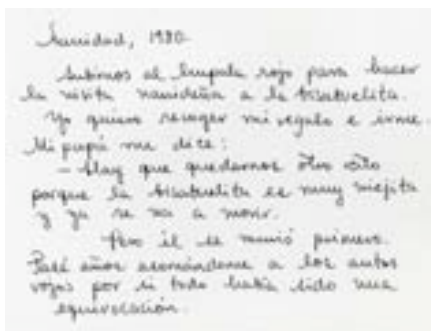 Navidad, 1980.
Subimos al Impala rojo para hacer
la visita navideña a la bisabuelita.
Yo quiero recoger mi regalo e irme.
Mi papá me dice:
- Hay que quedarnos otro rato
porque la bisabuelita es muy viejita
y ya se va a morir.
Pero él se murió primero.
Pasé años asomándome a los autos
rojos por si todo había sido una
equivocación.